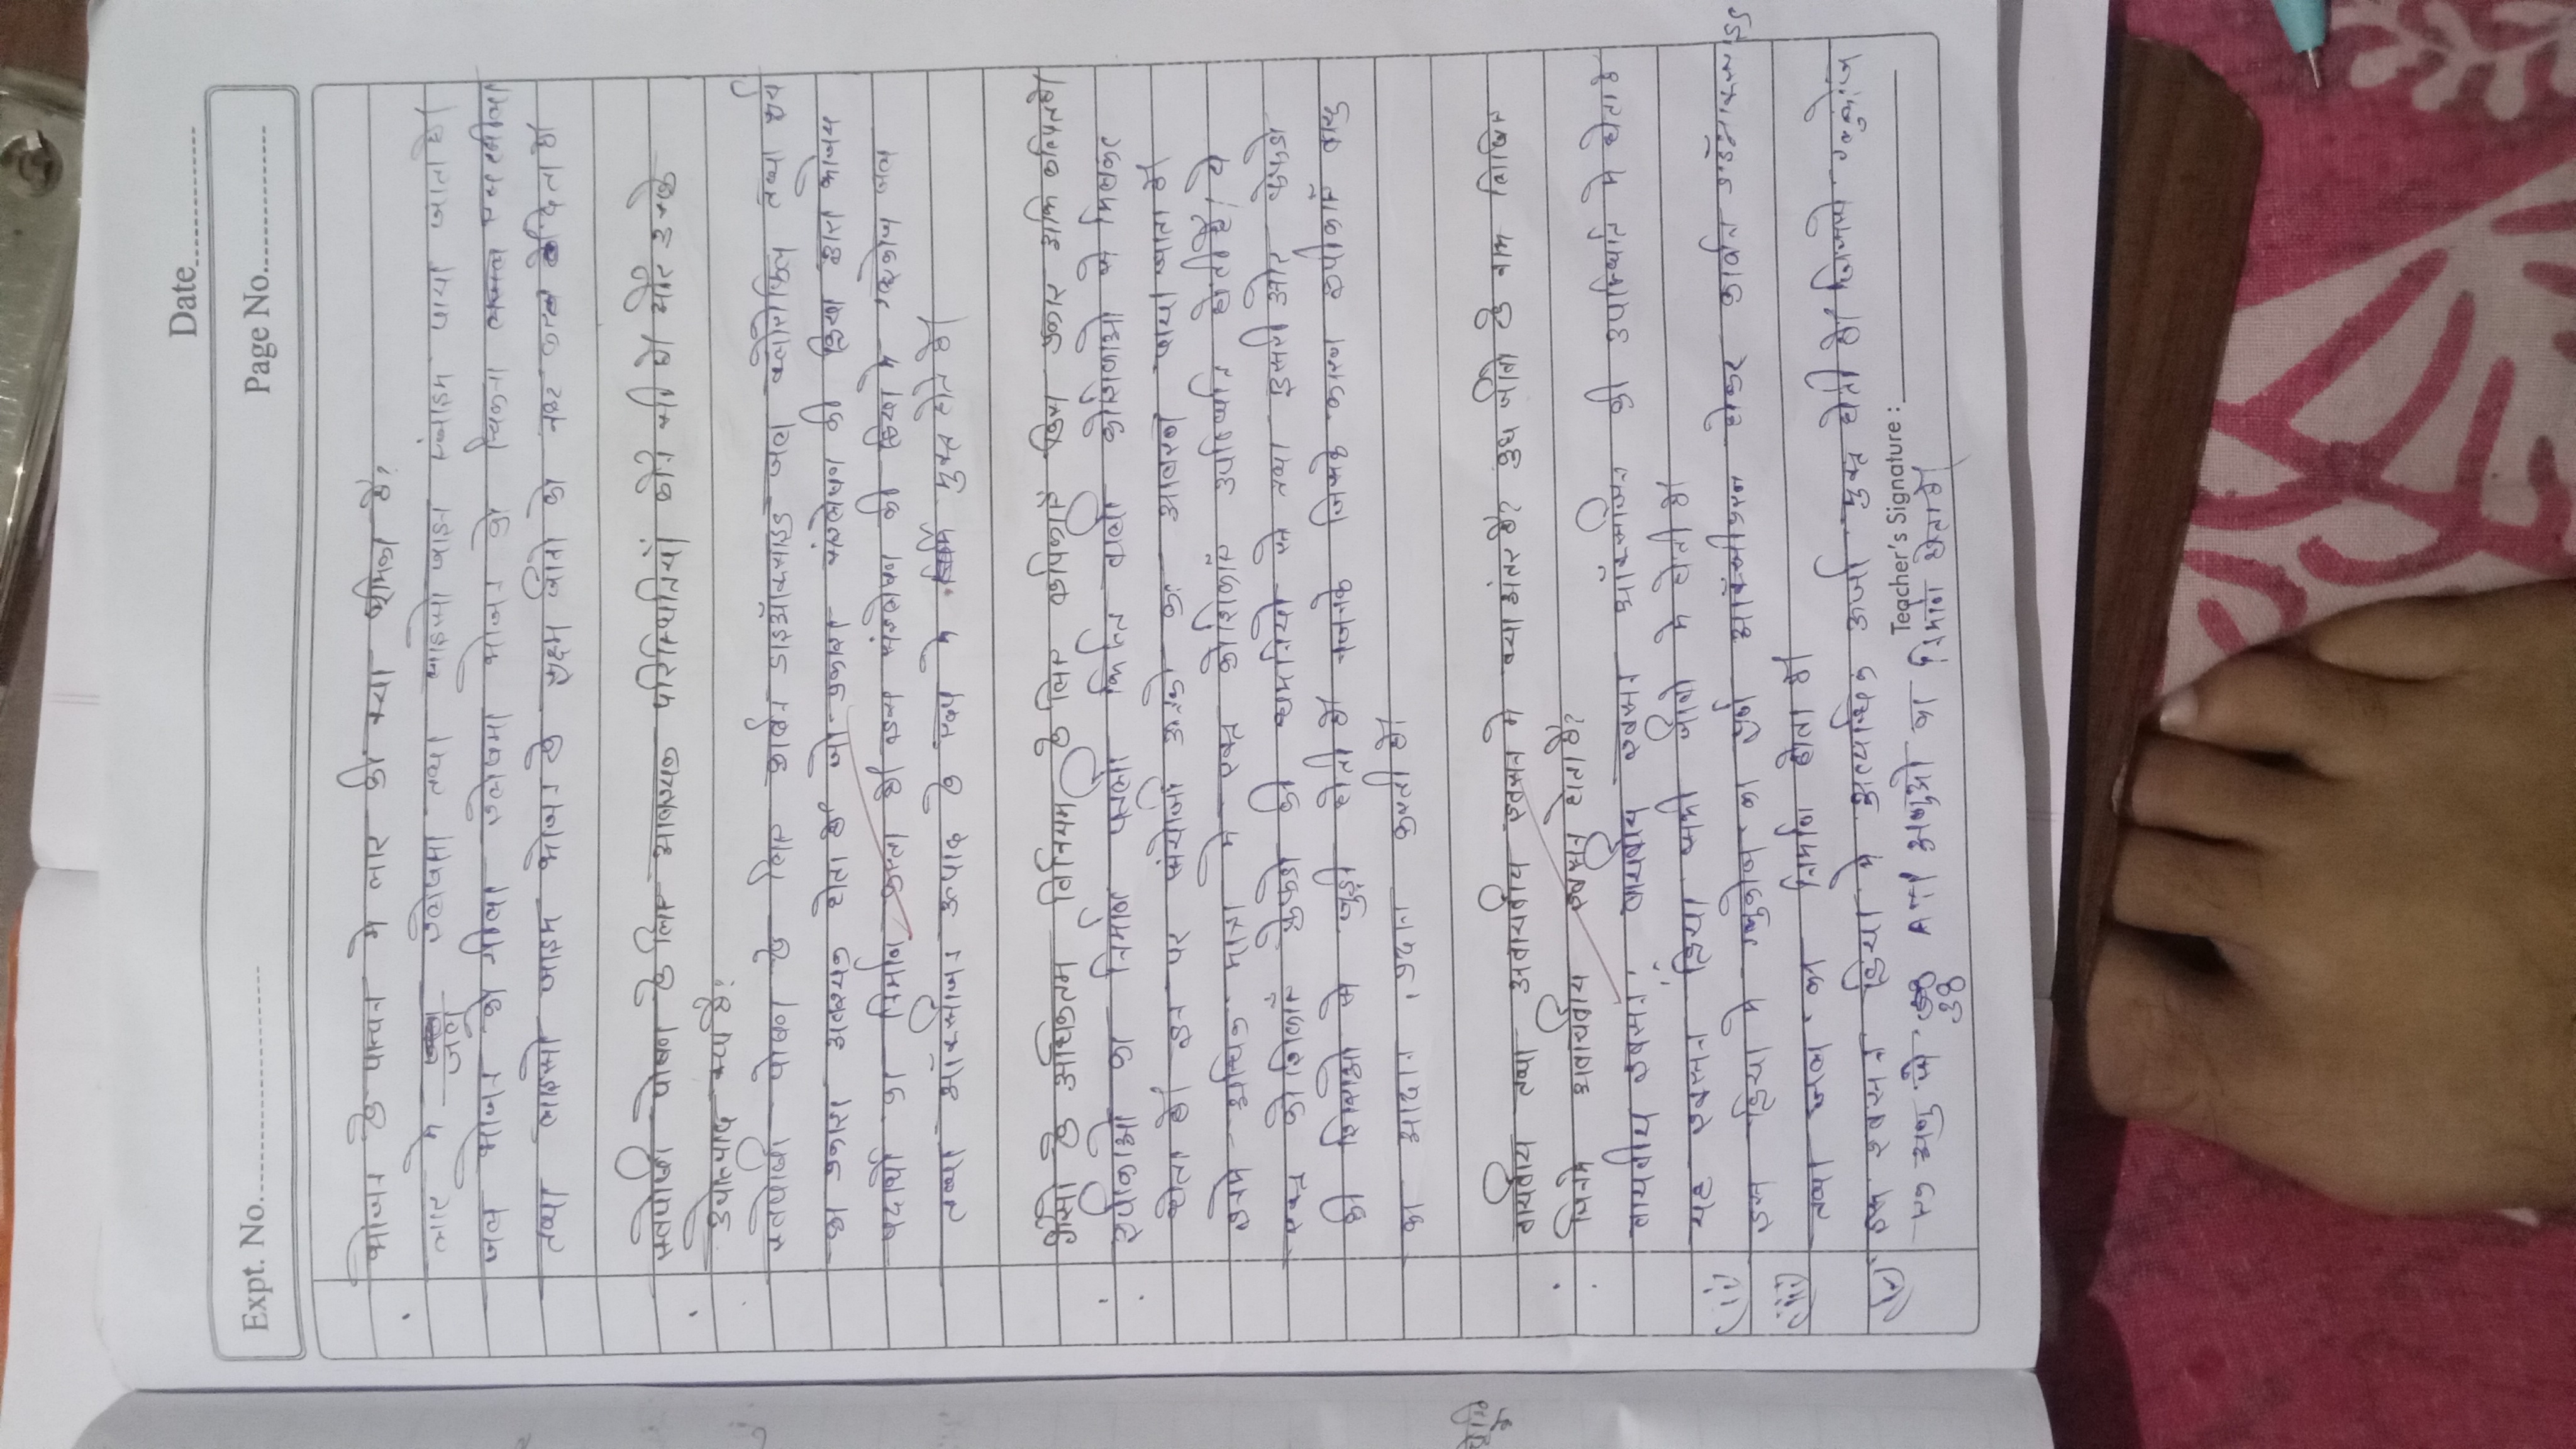 Date
Expt. No.
Page No.
भोजन के पाचन मे लार की क्या भूमिका है?
लार मे जल श्लेषमा तथा लाइसो जाइम एंजाइम पाया जाता है।
जल भोजन को गीला श्लेषमा भोजन को चिकना
तथा लाइसो जाइम भोजन के सूक्ष्म जीवो को नष्ट कर देता है।
स्वतपोषी पोषण के लिए आवश्यक परिस्थितियां कौन सी है और उनके
उपोत्पाद क्या है?
स्वतपोषी पोषण के लिए कार्बन डाइऑक्साइड जल क्लोरोफिल तथा सूर्य
का प्रकाश अवश्यक होता है जो प्रकाश संश्लेषण की क्रिया द्वारा भोजन
पदार्थो का निर्माण करता है प्रकाश संश्लेषण की क्रिया मे ग्लूकोज जल
तथा ऑक्सीजन उत्पाद के रूप मे मुक्त होते है।
गैसो के अधिकतम विनिमय के लिए कूपिकाएं किस प्रकार अभिकल्पित है।
कूपिकाओ का निर्माण पतली भित्ति वाली कोशिकाओ से मिलकर
होता है। इन पर संयोजी ऊतको का आवरण पाया जाता है।
इनमे अधिक मात्रा मे रक्त कोशिकाएं उपस्थित होती है। ये
रक्त कोशिकाएं फेफड़ो की धमनियो से तथा दूसरी ओर फेफड़ो
की शिराओ से जुड़ी होती है जिसके कारण कूपिकाएं वायु
का आदान प्रदान करती है।
वायवीय तथा अवायवीय श्वसन मे क्या अंतर है? कुछ जीवो के नाम लिखिए
जिनमे अवायवीय श्वसन होता है?
वायवीय श्वसन, वायवीय श्वसन ऑक्सीजन की उपस्थिति मे होता है
(ii) यह श्वसन क्रिया सभी जीवो मे होती है।
(iii) इस क्रिया मे ग्लूकोज का पूर्ण ऑक्सीकरण होकर कार्बन डाइऑक्साइड
तथा जल का निर्माण होता है।
(iv) इस श्वसन क्रिया मे अत्यधिक ऊर्जा मुक्त होती है। जिसमे ग्लूकोज
एक अणु से 38 ATP अणुओ का निर्माण होता है।
38
Teacher's Signature :